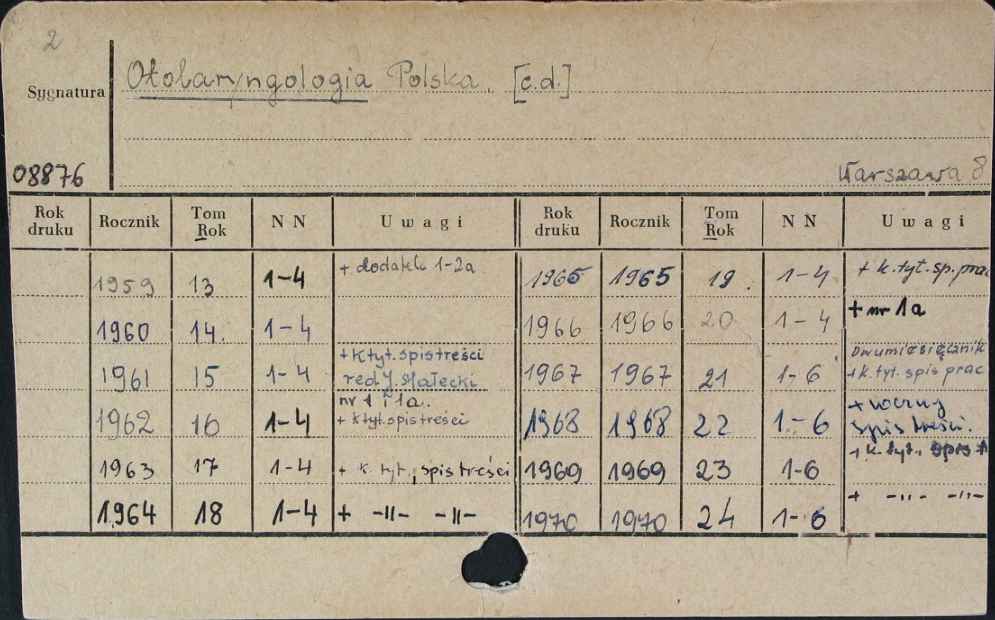 2
Sygnatura
Otolaryngologia Polska. [c.d.]
08876
Warszawa 8
Rok druku | Rocznik | Tom Rok | NN | Uwagi | Rok druku | Rocznik | Tom Rok | NN | Uwagi
1959 | 13 | 1-4 | + dodatek 1-2a | 1965 | 1965 | 19. | 1-4 | + k.tyt.sp.prac
1960 | 14. | 1-4 | | 1966 | 1966 | 20 | 1-4 | + nr 1a
1961 | 15 | 1-4 | + k.tyt.spis treści red J. Małecki | 1967 | 1967 | 21 | 1-6 | Dwumiesięcznik +k.tyt. spis prac
1962 | 16 | 1-4 | nr 1 i 1a. + k.tyt.spis treści | 1968 | 1968 | 22 | 1.-6 | + roczny spis treści.
1963 | 17 | 1-4 | + k. tyt., spis treści | 1969 | 1969 | 23 | 1-6 | + k.tyt., spis t
1964 | 18 | 1-4 | + -"- -"- | 1970 | 1970 | 24 | 1-6 | + -"- -"-